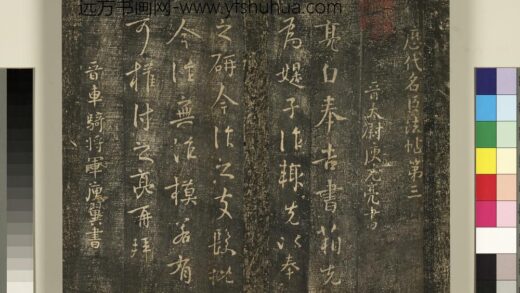 远方书画网-www.yfshuhua.com
歷代名臣法帖第三
晉太尉庾元亮書
亮白奉告書箱先
為媞子作輒先以奉
之研今作之支髮批
今作無作模若有
可權付之亮再拜
晉車騎將軍庾翼書